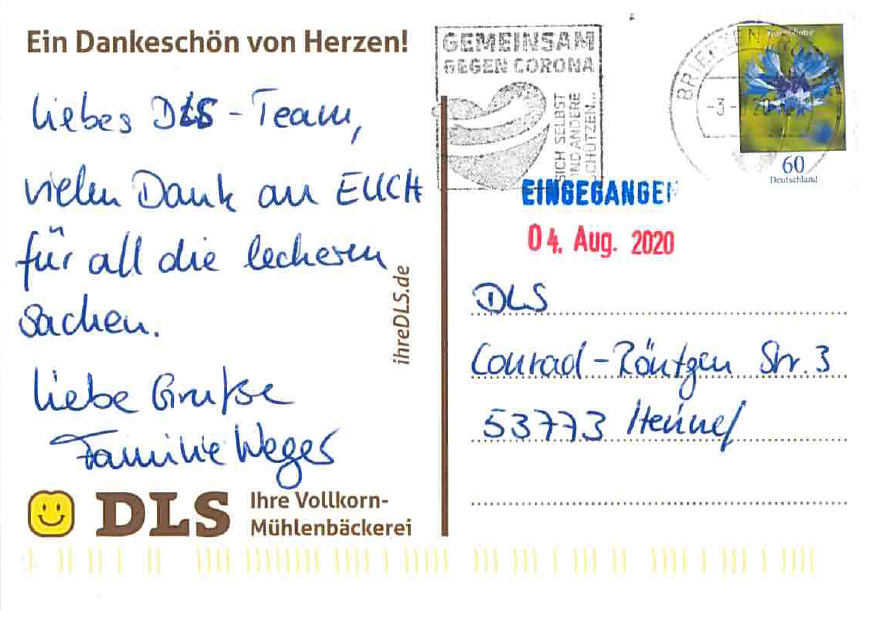 Ein Dankeschön von Herzen!
Liebes DLS-Team,
vielen Dank an EUCH
für all die leckeren
Sachen.
Liebe Grüße
Familie Weger
DLS
Ihre Vollkorn-
Mühlenbäckerei
ihreDLS.de
GEMEINSAM
GEGEN CORONA
SICH SELBST
UND ANDERE
SCHÜTZEN...
60
Deutschland
EINGEGANGEN
04. Aug. 2020
DLS
Conrad-Röntgen Str. 3
53773 Hennef